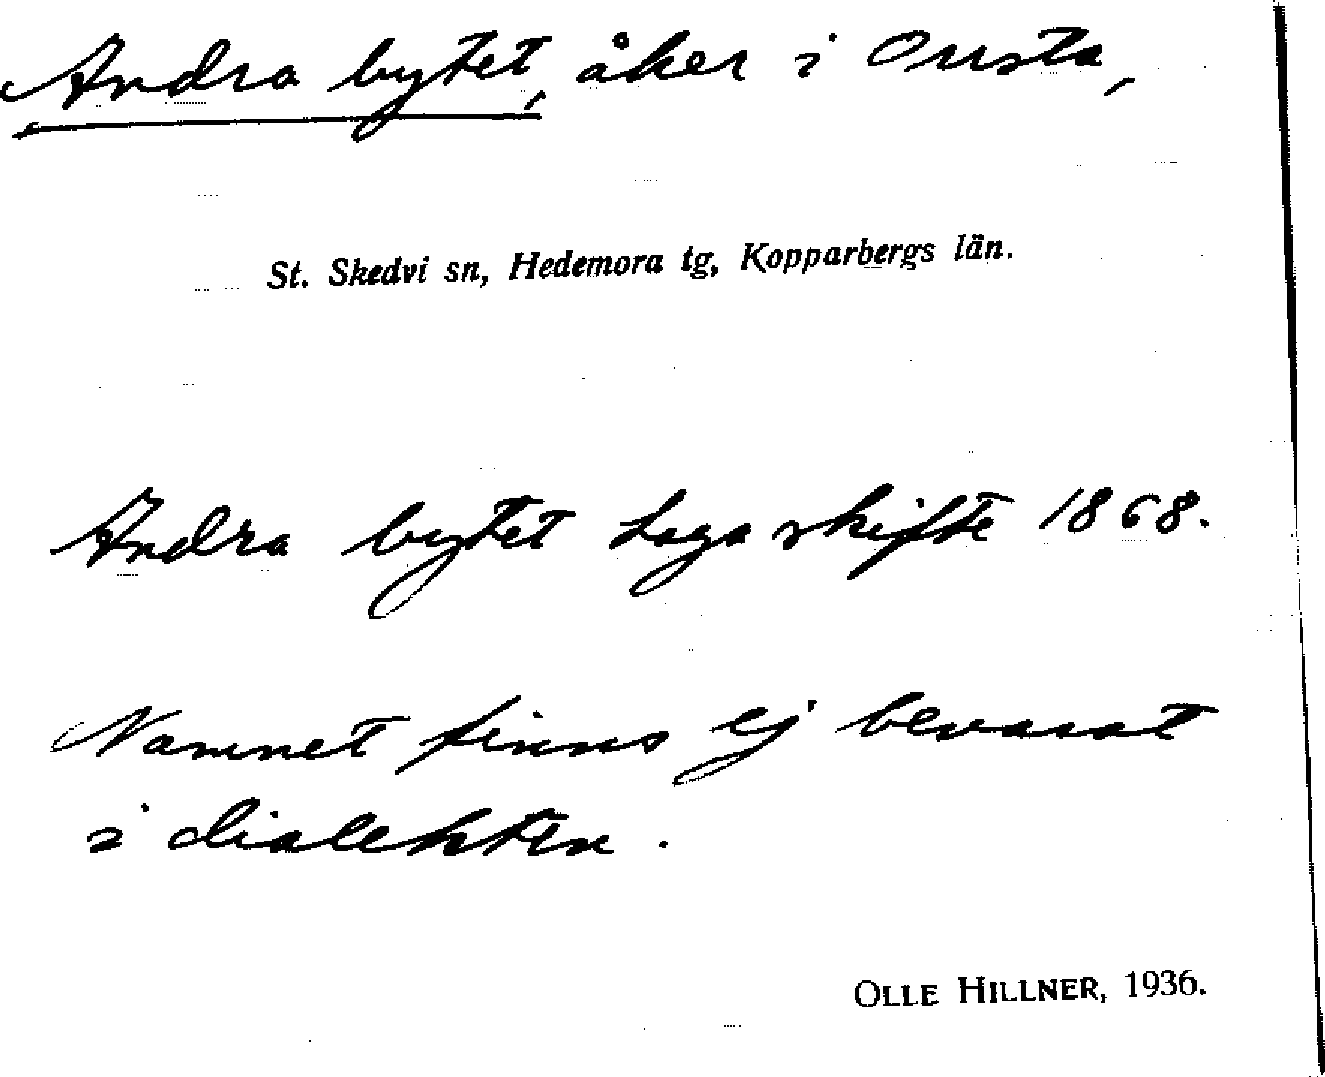 Andra bytet, åker i Onsta,
St. Skedvi sn, Hedemora tg, Kopparbergs län.
Andra bytet Laga skifte 1868.
Namnet finns ej bevarat
i dialekten.
OLLE HILLNER, 1936.